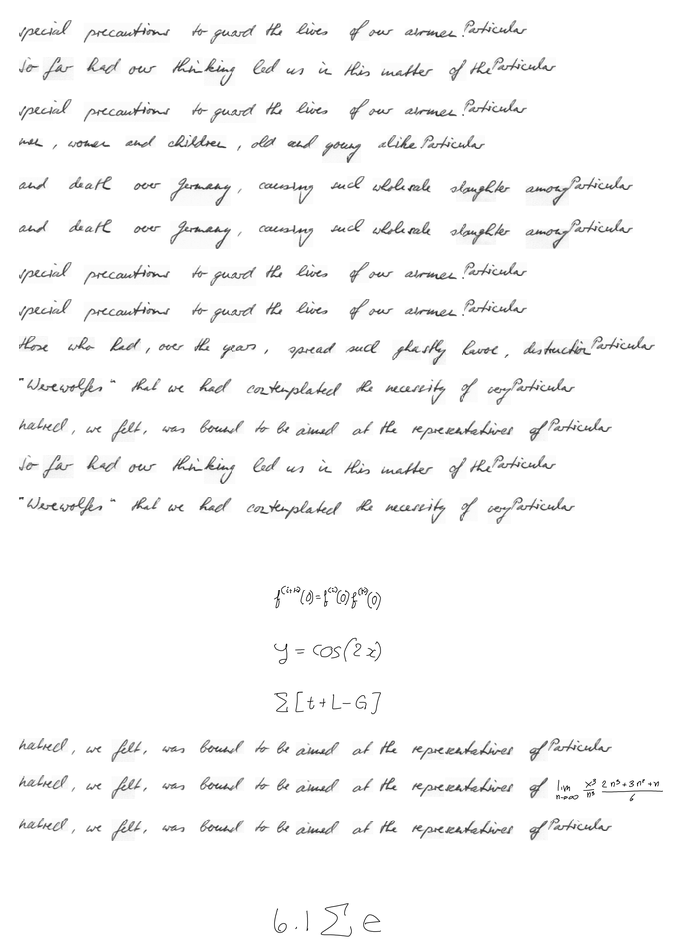 special precautions to guard the lives of our airmen. Particular
So far had our thinking led us in this matter of the Particular
special precautions to guard the lives of our airmen. Particular
men, women and children, old and young alike Particular
and death over Germany, causing such wholesale slaughter among Particular
and death over Germany, causing such wholesale slaughter among Particular
special precautions to guard the lives of our airmen. Particular
special precautions to guard the lives of our airmen. Particular
those who had, over the years, spread such ghastly havoc, destruction Particular
"Werewolfes" that we had contemplated the necessity of very Particular
hatred, we felt, was bound to be aimed at the representatives of Particular
So far had our thinking led us in this matter of the Particular
"Werewolfes" that we had contemplated the necessity of very Particular
f^{(i+k)}(0)=f^{(i)}(0)f^{(k)}(0)
y = cos(2x)
Σ[t+L-G]
hatred, we felt, was bound to be aimed at the representatives of Particular
hatred, we felt, was bound to be aimed at the representatives of \lim_{n→∞} \frac{x^3}{n^3} \frac{2n^3+3n^2+n}{6}
hatred, we felt, was bound to be aimed at the representatives of Particular
6.1 Σ e